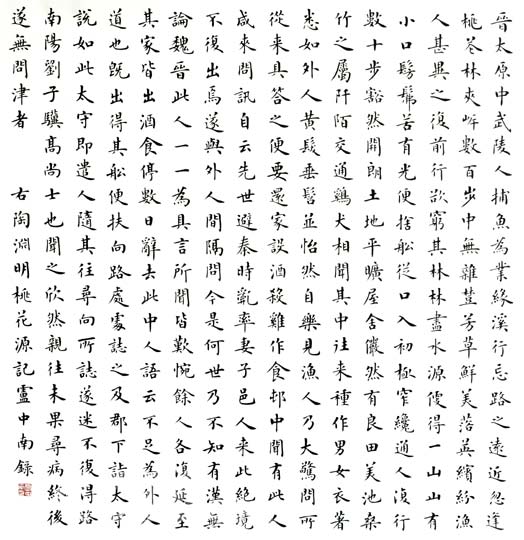 晉太原中武陵人捕魚為業緣溪行忘路之遠近忽逢
桃花林夾岸數百步中無雜荳芳草鮮美落英繽紛漁
人甚異之復前行欲窮其林林盡水源便得一山山有
小口髣髴若有光便捨船從口入初極窄纔通人復行
數十步豁然開朗土地平曠屋舍儼然有良田美池桑
竹之屬阡陌交通鷄犬相聞其中往來種作男女衣著
悉如外人黃髮垂髫並怡然自樂見漁人乃大驚問所
從來具答之便要還家設酒殺雞作食邨中聞有此人
咸來問訊自云先世避秦時亂率妻子邑人來此絕境
不復出焉遂與外人間隔問今是何世乃不知有漢無
論魏晉此人一一為具言所聞皆歎惋餘人各復延至
其家皆出酒食停數日辭去此中人語云不足為外人
道也既出得其船便扶向路處處誌之及郡下詣太守
說如此太守即遣人隨其往尋向所誌遂迷不復得路
南陽劉子驥高尚士也聞之欣然親往未果尋病終後
遂無問津者 右陶淵明桃花源記盧中南錄